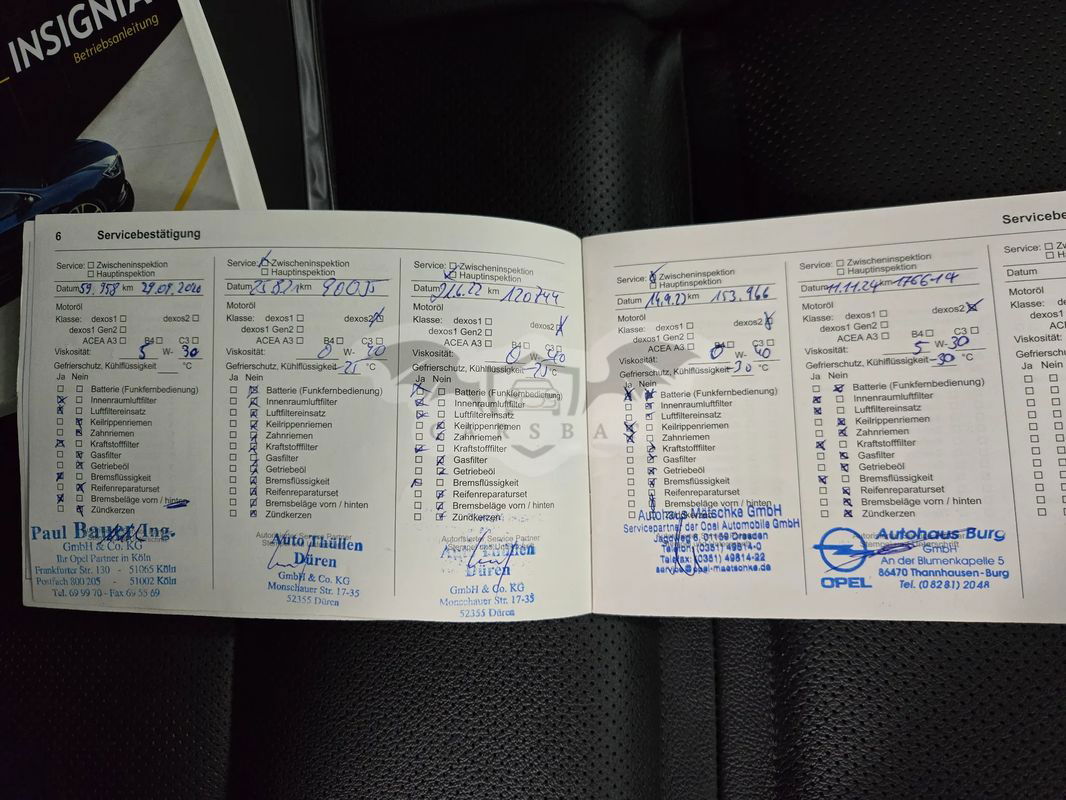 INSIGNIA
Betriebsanleitung
6 Servicebestätigung
Service: Zwischeninspektion
Hauptinspektion
Datum 59.958 km 29.09.2020
Motoröl
Klasse: dexos1
dexos1 Gen2
ACEA A3 B4 C3
Viskosität: 5 W- 30
Gefrierschutz, Kühlflüssigkeit °C
Ja Nein
Batterie (Funkfernbedienung)
Innenraumluftfilter
Luftfiltereinsatz
Keilrippenriemen
Zahnriemen
Kraftstofffilter
Gasfilter
Getriebeöl
Bremsflüssigkeit
Reifenreparaturset
Bremsbeläge vorn / hinten
Zündkerzen
Paul Bauer Ing.
GmbH & Co. KG
Ihr Opel Partner in Köln
Frankfurter Str. 130 - 51065 Köln
Postfach 800 205 - 51002 Köln
Tel. 69 99 70 - Fax 69 55 69
Service: Zwischeninspektion
Hauptinspektion
Datum km
Motoröl
Klasse: dexos1 dexos2
dexos1 Gen2
ACEA A3 B4 C3
Viskosität: 0 W-
Gefrierschutz, Kühlflüssigkeit -25 °C
Ja Nein
Batterie (Funkfernbedienung)
Innenraumluftfilter
Luftfiltereinsatz
Keilrippenriemen
Zahnriemen
Kraftstofffilter
Gasfilter
Getriebeöl
Bremsflüssigkeit
Reifenreparaturset
Bremsbeläge vorn / hinten
Zündkerzen
Autorisierter Service Partner
Auto Thüllen
Düren
GmbH & Co. KG
Monschauer Str. 17-35
52355 Düren
Service: Zwischeninspektion
Hauptinspektion
Datum 21.6.22 km 120744
Motoröl
Klasse: dexos1 dexos2
dexos1 Gen2
ACEA A3 B4 C3
Viskosität: 0 W- 40
Gefrierschutz, Kühlflüssigkeit -25 °C
Ja Nein
Batterie (Funkfernbedienung)
Innenraumluftfilter
Luftfiltereinsatz
Keilrippenriemen
Zahnriemen
Kraftstofffilter
Gasfilter
Getriebeöl
Bremsflüssigkeit
Reifenreparaturset
Bremsbeläge vorn / hinten
Zündkerzen
Autorisierter Service Partner
Auto Thüllen
Düren
GmbH & Co. KG
Monschauer Str. 17-35
52355 Düren
Service: Zwischeninspektion
Hauptinspektion
Datum 14.9.23 km 153.966
Motoröl
Klasse: dexos1 dexos2
dexos1 Gen2
ACEA A3 B4 C3
Viskosität: 0 W- 40
Gefrierschutz, Kühlflüssigkeit -30 °C
Ja Nein
Batterie (Funkfernbedienung)
Innenraumluftfilter
Luftfiltereinsatz
Keilrippenriemen
Zahnriemen
Kraftstofffilter
Gasfilter
Getriebeöl
Bremsflüssigkeit
Reifenreparaturset
Bremsbeläge vorn / hinten
Zündkerzen
Autohaus Mätschke GmbH
Servicepartner der Opel Automobile GmbH
Jagdweg 6, 01159 Dresden
Telefon: (0351) 49814-0
Telefax: (0351) 49814-22
service@opel-maetschke.de
Service: Zwischeninspektion
Hauptinspektion
Datum 11.11.24 km 176614
Motoröl
Klasse: dexos1 dexos2
dexos1 Gen2
ACEA A3 B4 C3
Viskosität: 5 W- 30
Gefrierschutz, Kühlflüssigkeit -30 °C
Ja Nein
Batterie (Funkfernbedienung)
Innenraumluftfilter
Luftfiltereinsatz
Keilrippenriemen
Zahnriemen
Kraftstofffilter
Gasfilter
Getriebeöl
Bremsflüssigkeit
Reifenreparaturset
Bremsbeläge vorn / hinten
Zündkerzen
OPEL
Autohaus Burg
GmbH
An der Blumenkapelle 5
86470 Thannhausen-Burg
Tel. (08281) 2048
Servicebe
Service: Zw
Ha
Datum
Motoröl
Klasse: dex
dexos1 G
ACEA
Viskosität:
Gefriersch
Ja Nein
CARSBAT